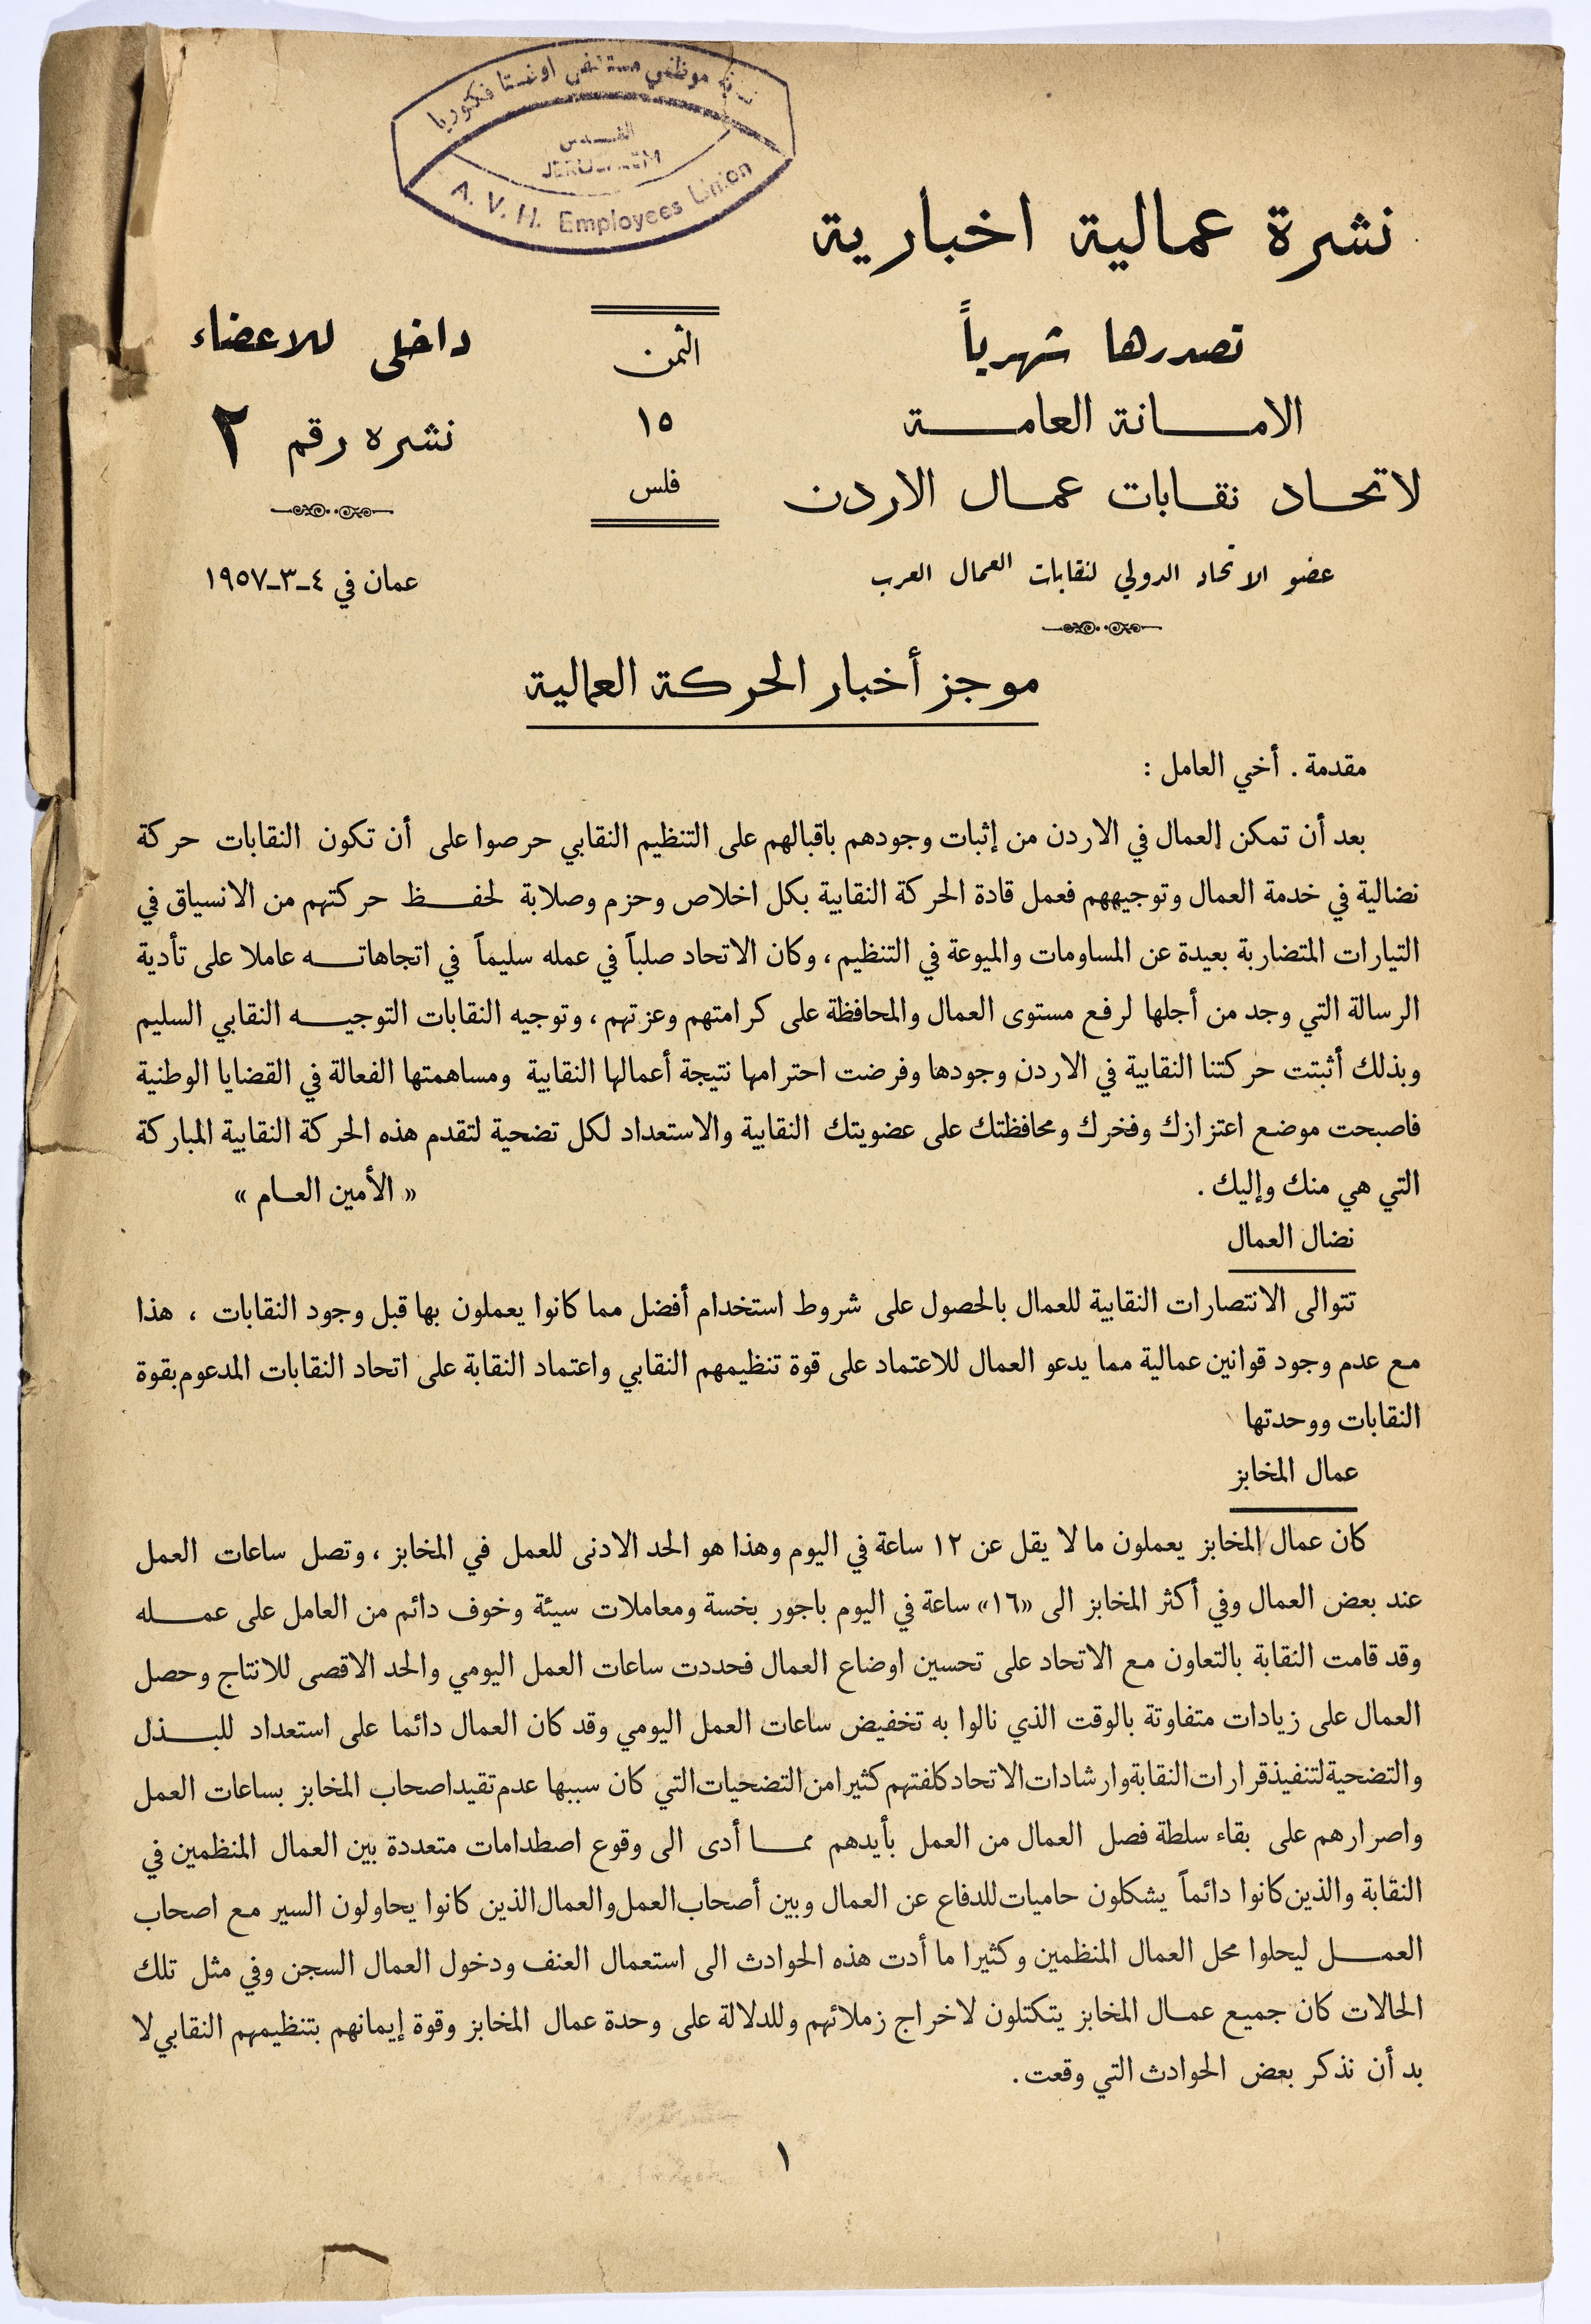 نقابة موظفي مستشفى اوغستا فكتوريا
القدس
JERUSALEM
A. V. H. Employees Union
نشرة عمالية اخبارية
تصدرها شهرياً
الامانة العامة
لاتحاد نقابات عمال الاردن
عضو الاتحاد الدولي لنقابات العمال العرب
الثمن
١٥
فلس
داخلي للاعضاء
نشره رقم ٢
عمان في ٤-٣-١٩٥٧
موجز أخبار الحركة العمالية
مقدمة . أخي العامل :
بعد أن تمكن العمال في الاردن من إثبات وجودهم باقبالهم على التنظيم النقابي حرصوا على أن تكون النقابات حركة
نضالية في خدمة العمال وتوجيههم فعمل قادة الحركة النقابية بكل اخلاص وحزم وصلابة لحفظ حركتهم من الانسياق في
التيارات المتضاربة بعيدة عن المساومات والميوعة في التنظيم ، وكان الاتحاد صلباً في عمله سليماً في اتجاهاته عاملا على تأدية
الرسالة التي وجد من أجلها لرفع مستوى العمال والمحافظة على كرامتهم وعزتهم ، وتوجيه النقابات التوجيه النقابي السليم
وبذلك أثبتت حركتنا النقابية في الاردن وجودها وفرضت احترامها نتيجة أعمالها النقابية ومساهمتها الفعالة في القضايا الوطنية
فاصبحت موضع اعتزازك وفخرك ومحافظتك على عضويتك النقابية والاستعداد لكل تضحية لتقدم هذه الحركة النقابية المباركة
التي هي منك وإليك . « الأمين العام »
نضال العمال
تتوالى الانتصارات النقابية للعمال بالحصول على شروط استخدام أفضل مما كانوا يعملون بها قبل وجود النقابات ، هذا
مع عدم وجود قوانين عمالية مما يدعو العمال للاعتماد على قوة تنظيمهم النقابي واعتماد النقابة على اتحاد النقابات المدعوم بقوة
النقابات ووحدتها
عمال المخابز
كان عمال المخابز يعملون ما لا يقل عن ١٢ ساعة في اليوم وهذا هو الحد الادنى للعمل في المخابز ، وتصل ساعات العمل
عند بعض العمال وفي أكثر المخابز الى «١٦» ساعة في اليوم باجور بخسة ومعاملات سيئة وخوف دائم من العامل على عمله
وقد قامت النقابة بالتعاون مع الاتحاد على تحسين اوضاع العمال فحددت ساعات العمل اليومي والحد الاقصى للانتاج وحصل
العمال على زيادات متفاوتة بالوقت الذي نالوا به تخفيض ساعات العمل اليومي وقد كان العمال دائما على استعداد للبذل
والتضحية لتنفيذ قرارات النقابة وارشادات الاتحاد كلفتهم كثيرا من التضحيات التي كان سببها عدم تقيد اصحاب المخابز بساعات العمل
واصرارهم على بقاء سلطة فصل العمال من العمل بأيدهم مما أدى الى وقوع اصطدامات متعددة بين العمال المنظمين في
النقابة والذين كانوا دائماً يشكلون حاميات للدفاع عن العمال وبين أصحاب العمل والعمال الذين كانوا يحاولون السير مع اصحاب
العمل ليحلوا محل العمال المنظمين وكثيرا ما أدت هذه الحوادث الى استعمال العنف ودخول العمال السجن وفي مثل تلك
الحالات كان جميع عمال المخابز يتكتلون لاخراج زملائهم وللدلالة على وحدة عمال المخابز وقوة إيمانهم بتنظيمهم النقابي لا
بد أن نذكر بعض الحوادث التي وقعت .
١